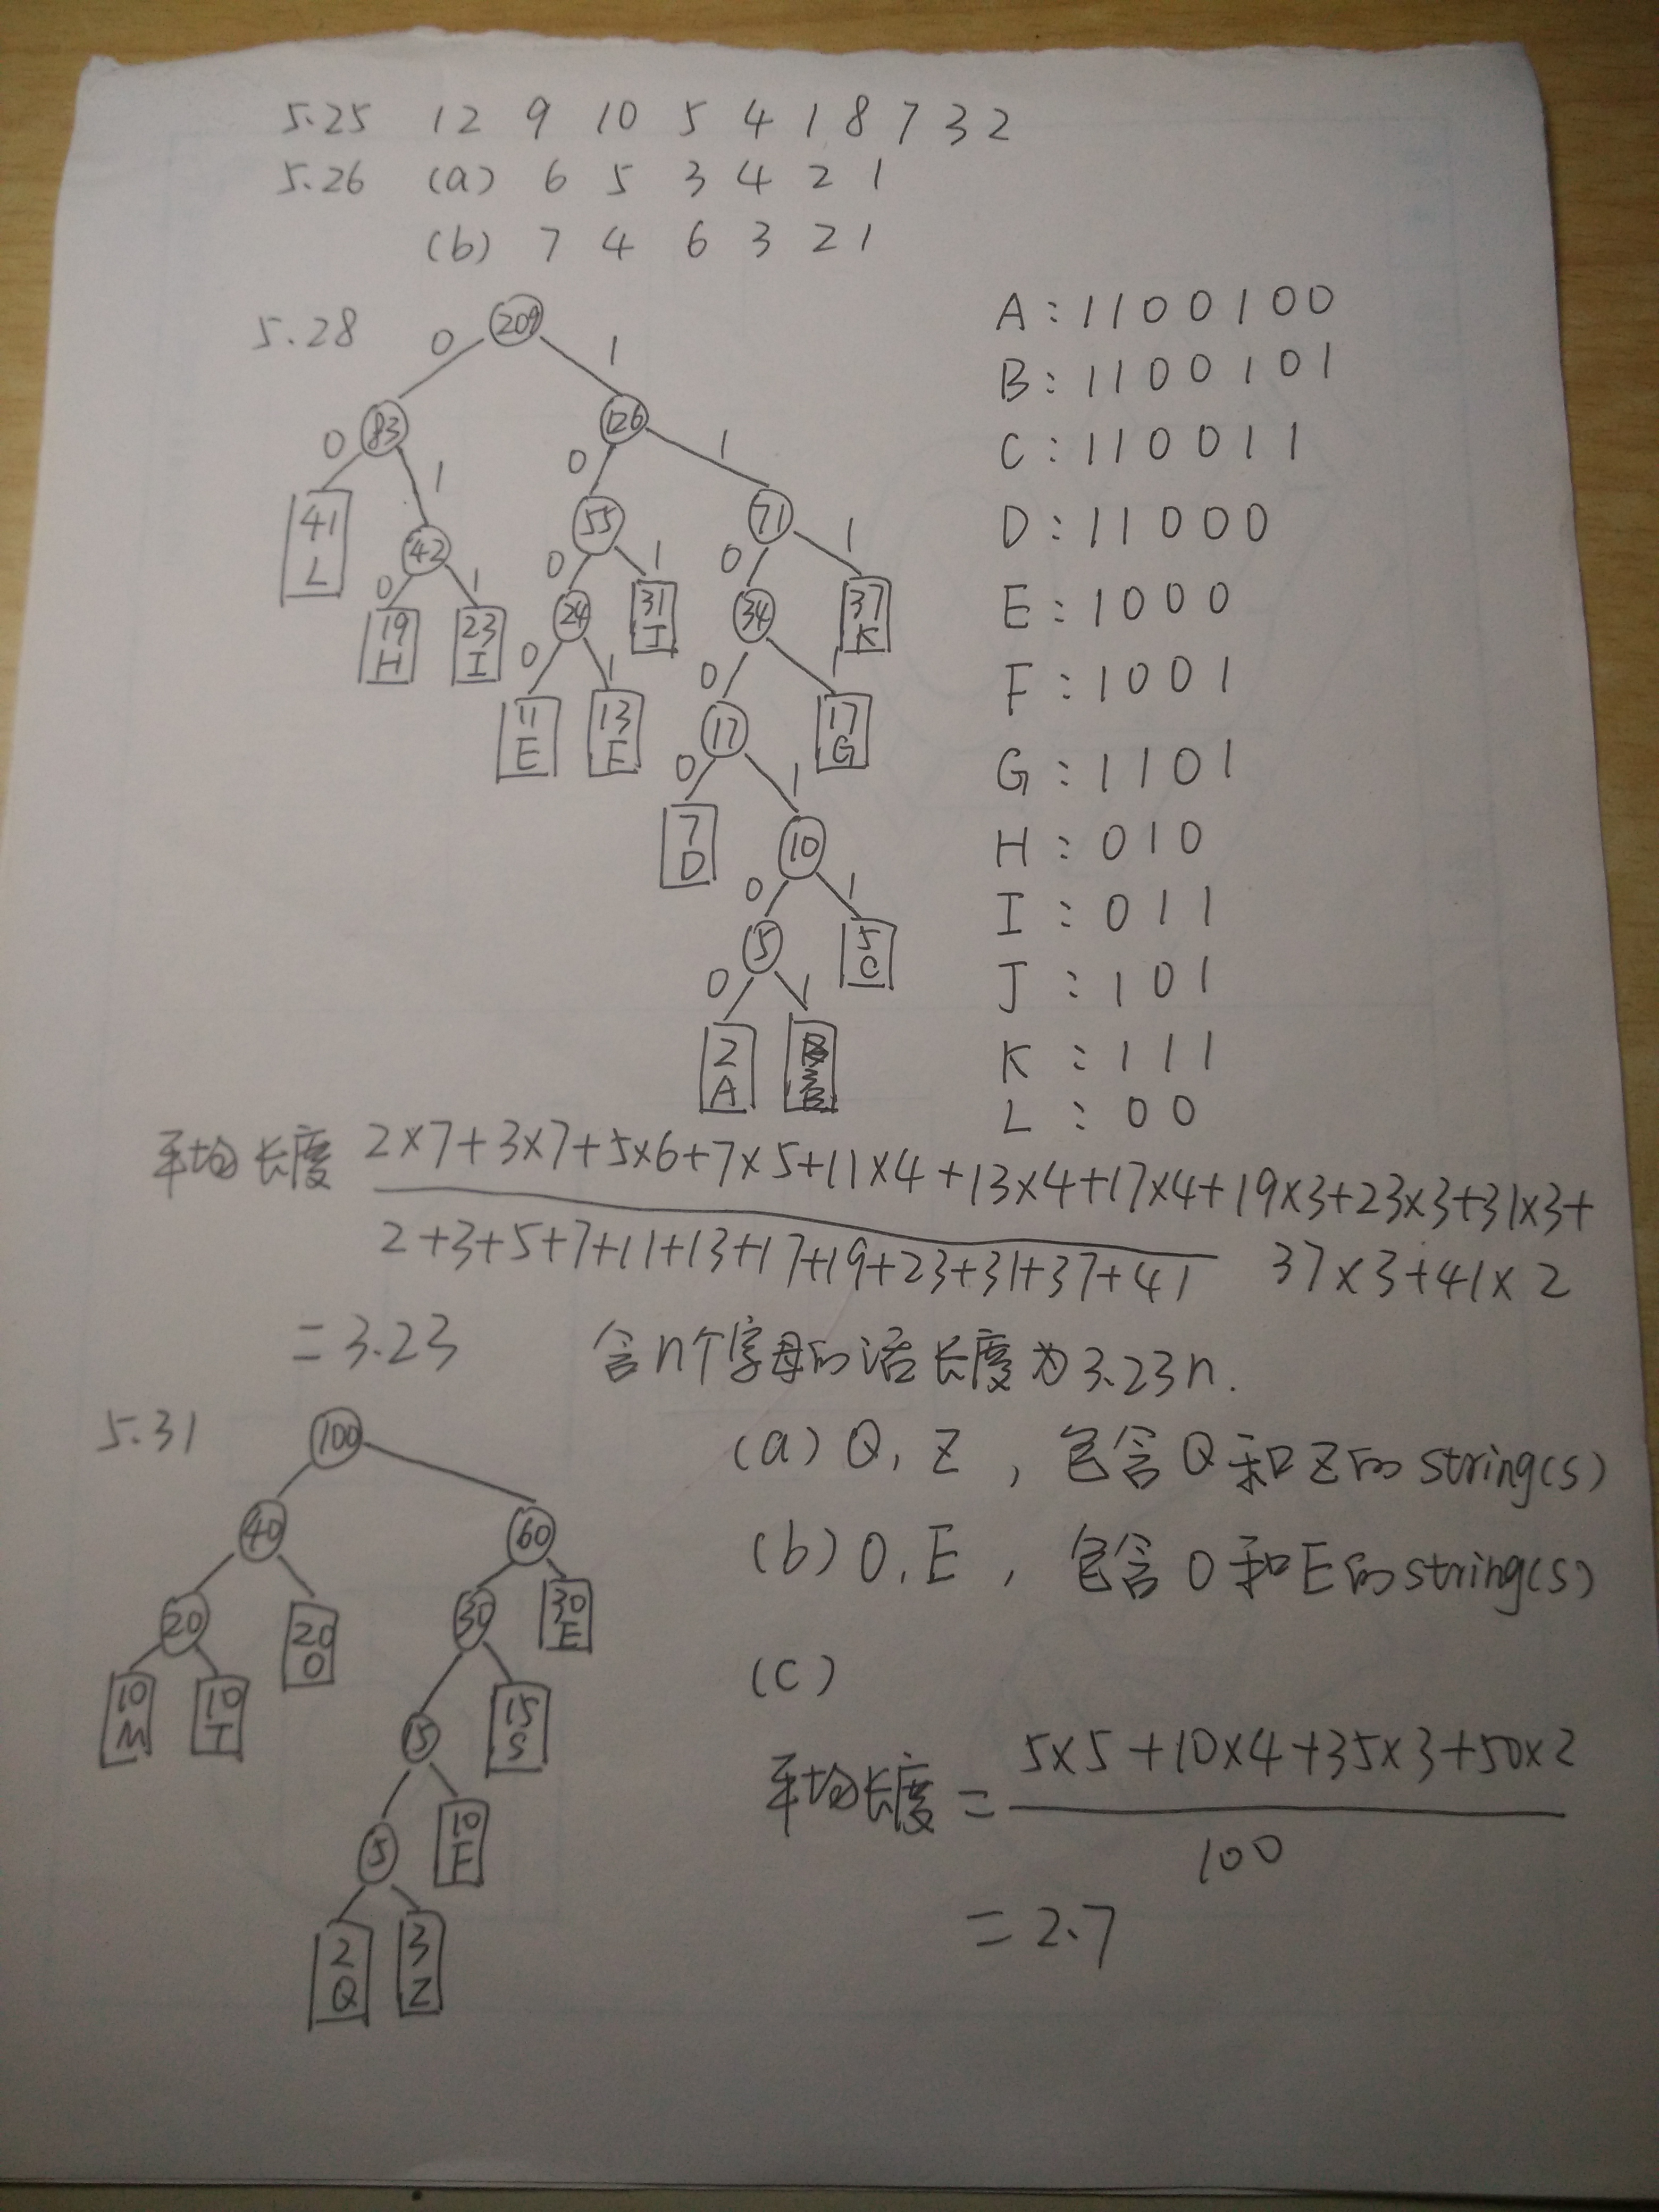 5.25 12 9 10 5 4 1 8 7 3 2
5.26 (a) 6 5 3 4 2 1
(b) 7 4 6 3 2 1
5.28
209
0 1
83 126
0 1 0 1
41 L
42 55 71
0 1 0 1 0 1
19 H
23 I
24
31 J
34
37 K
0 1 0 1
11 E
13 F
17
17 G
0 1
7 D
10
0 1
5
5 C
0 1
2 A
3 B
A : 1100100
B : 1100101
C : 110011
D : 11000
E : 1000
F : 1001
G : 1101
H : 010
I : 011
J : 101
K : 111
L : 00
平均长度 2×7+3×7+5×6+7×5+11×4+13×4+17×4+19×3+23×3+31×3+
37×3+41×2
2+3+5+7+11+13+17+19+23+31+37+41
=3.23 含n个字母的话长度为3.23n.
5.31
100
40 60
20
20 O
30
30 E
10 M
10 T
15
15 S
5
10 F
2 Q
3 Z
(a) Q, Z , 包含Q和Z的string(s)
(b) O, E , 包含O和E的string(s)
(c)
平均长度 = 5×5+10×4+35×3+50×2
100
=2.7